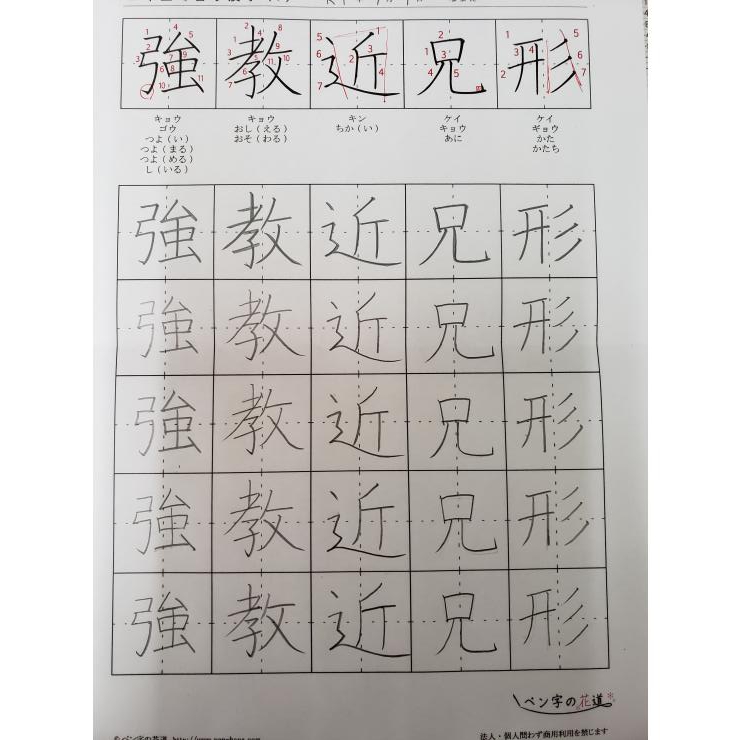 強 教 近 兄 形
キョウ キョウ キン ケイ ケイ
ゴウ おし(える) ちか(い) キョウ ギョウ
つよ(い) おそ(わる) あに かた
つよ(まる) かたち
つよ(める)
し(いる)
強 教 近 兄 形
強 教 近 兄 形
強 教 近 兄 形
強 教 近 兄 形
強 教 近 兄 形
ペン字の花道
©ペン字の花道 法人・個人問わず商用利用を禁じます